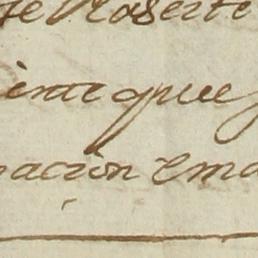 de Roberte
iente que
nacion ema